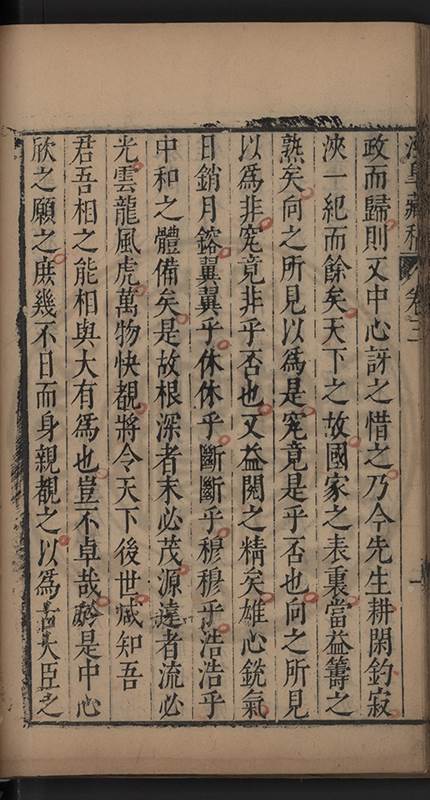 漢皐藏稿 卷三
政而歸則又中心訝之惜之乃今先生耕閑釣寂
浹一紀而餘矣天下之故國家之表裏當益籌之
熟矣向之所見以爲是究竟是乎否也向之所見
以爲非究竟非乎否也又益閱之精矣雄心銳氣
日銷月鎔翼翼乎休休乎斷斷乎穆穆乎浩浩乎
中和之體備矣是故根深者末必茂源達者流必
光雲龍風虎萬物快覩將令天下後世咸知吾
君吾相之能相與大有爲也豈不卓哉於是中心
欣之願之庶幾不日而身親覩之以爲吾大臣之